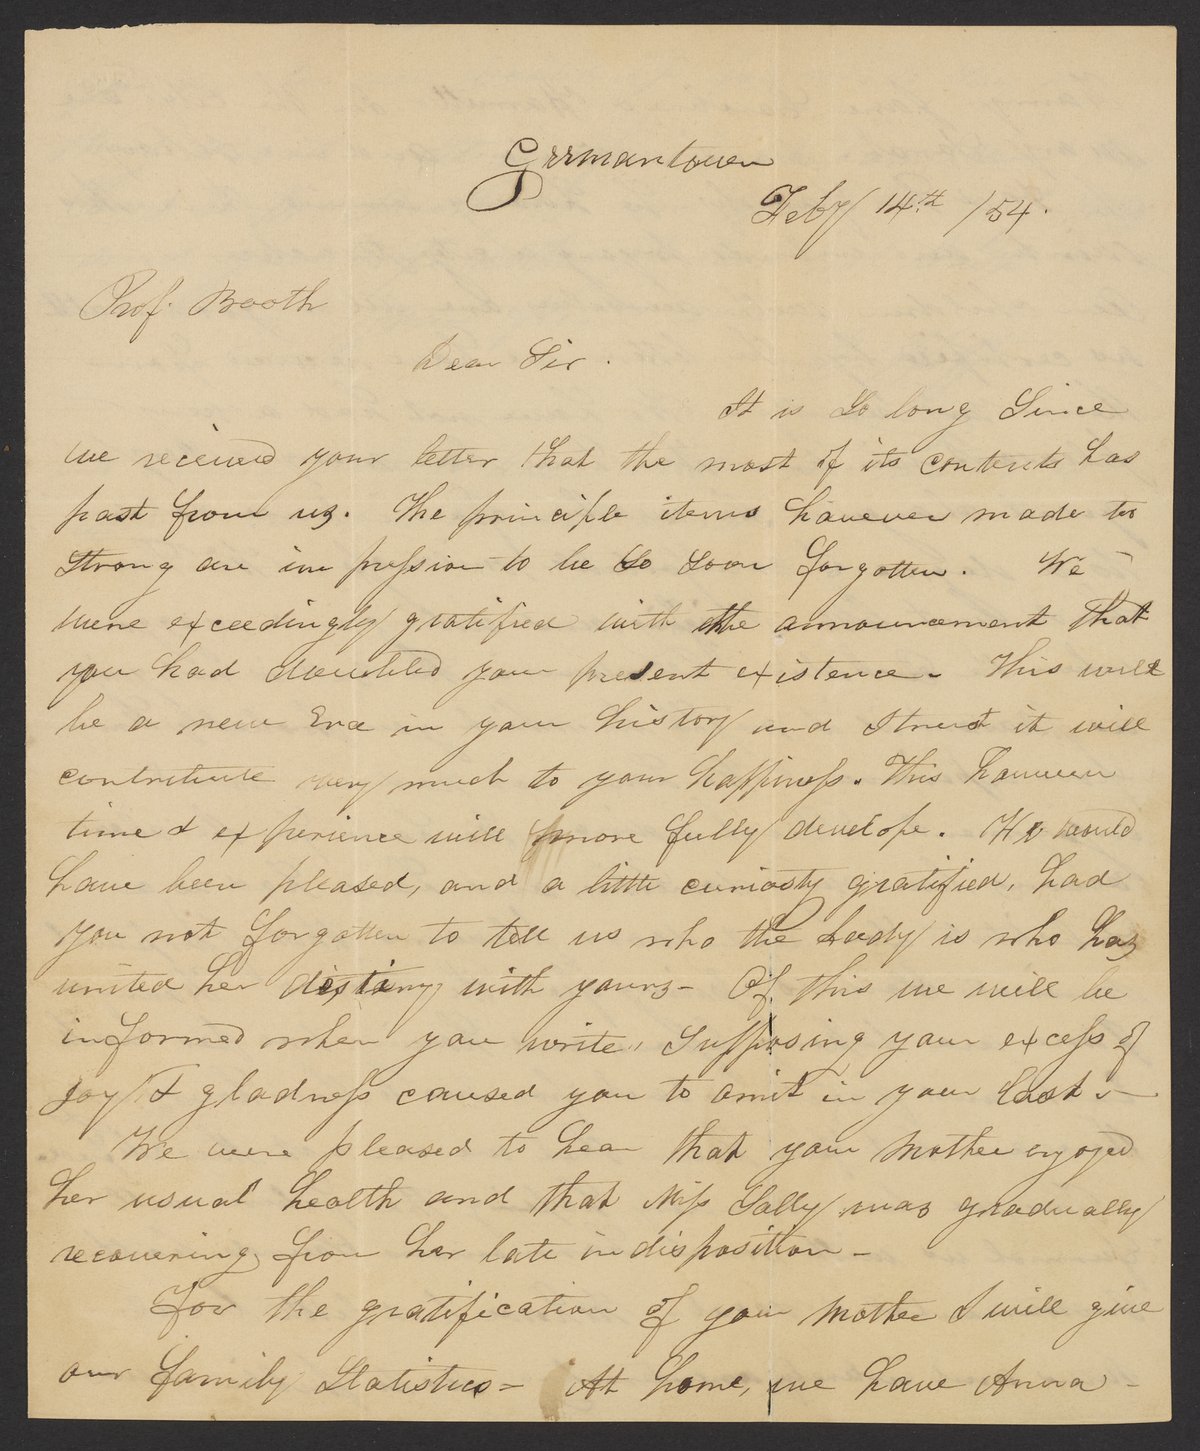 Germantown
Feby 14th /54.
Prof. Booth
Dear Sir.
It is So long Since
we received your letter that the most of its contents has
past from us. The principle items however made to
Strong an impression to be So soon forgotten. We
were exceedingly gratified with the announcement that
you had doubled your present existence - This will
be a new Era in your history and I trust it will
contribute very much to your happiness. This however
time & experience will more fully develope. We would
have been pleased, and a little curiosty gratified, had
you not forgotten to tell us who the Lady is who has
united her destiny with yours - Of this we will be
informed when you write, Supposing your excess of
joy & gladness caused you to omit in your last. -
We were pleased to hear that your Mother enjoyed
her usual health and that Miss Sally was gradually
recovering from her late indisposition -
For the gratification of your Mother I will give
our family Statistics - At home, we have Anna -